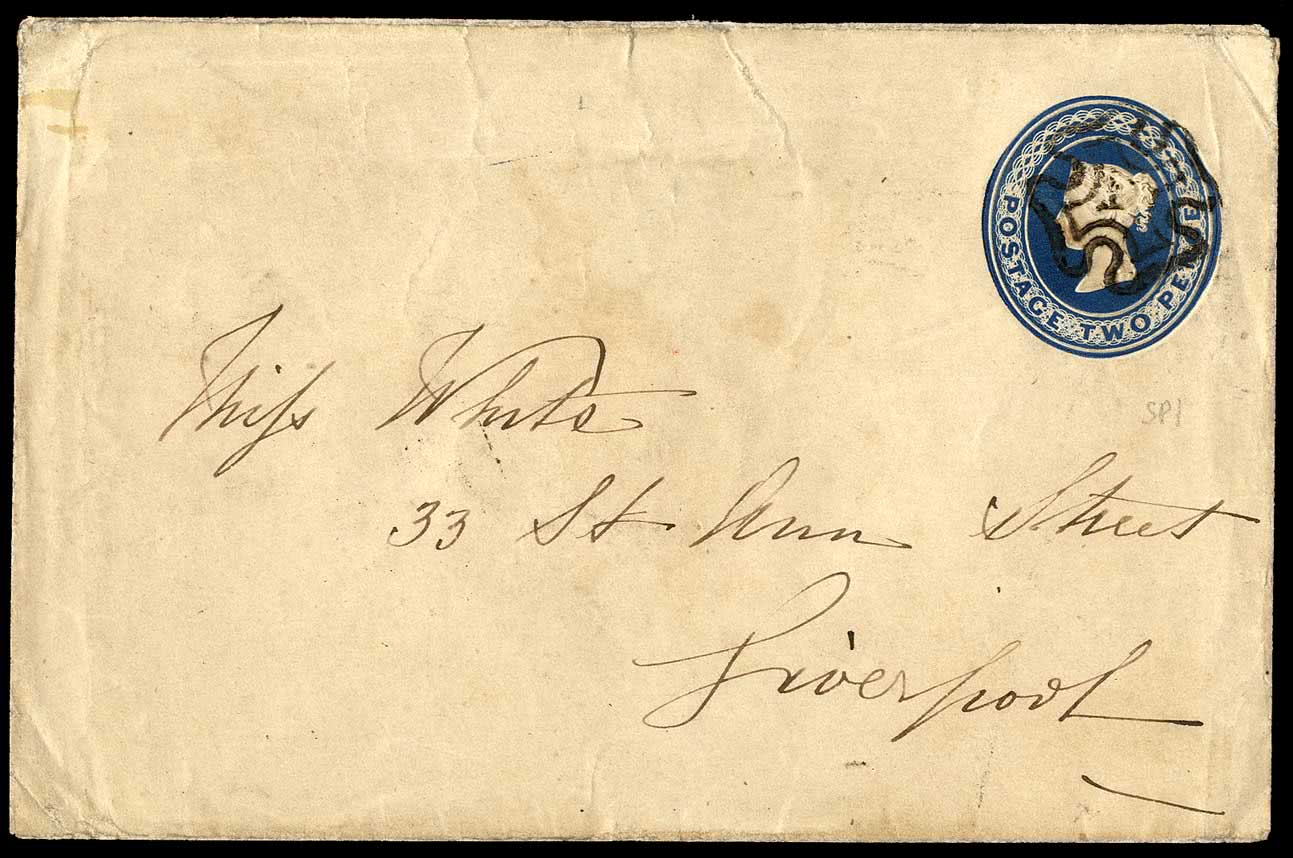 POSTAGE TWO PENCE
5
SP1
Miss White
33 St Ann Street
Liverpool